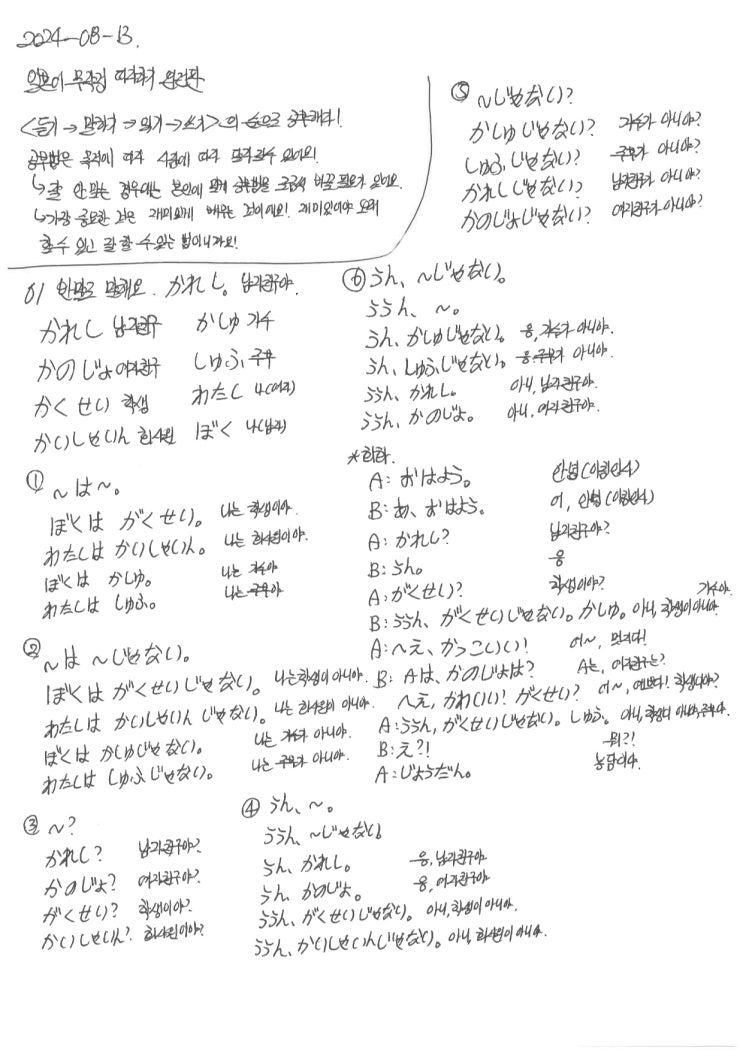 2024-08-13.
일본어 무작정 따라하기 완전판
<듣기 → 말하기 → 읽기 → 쓰기>의 순으로 공부해라!
공부법은 목적에 따라 시급에 따라 달라질수 있어요!
↳ 잘 안 맞는 경우에는 본인에 맞게 공부법을 조금씩 바꿀 필요가 있어요.
↳ 가장 중요한 것은 재미있게 배우는 것이에요! 재미있어야 오래
할 수 있고 잘 할 수 있는 법이니까요!
01 반말로 말해요. かれし。 남자친구야.
かれし 남자친구 かしゅ 가수
かのじょ 여자친구 しゅふ 주부
かくせい 학생 わたし 나(여자)
かいしゃいん 회사원 ぼく 나(남자)
① ~は~。
ぼくは がくせい。 나는 학생이야.
わたしは かいしゃいん。 나는 회사원이야.
ぼくは かしゅ。 나는 가수야
わたしは しゅふ。 나는 주부야
② ~は ~じゃない。
ぼくは がくせいじゃない。 나는 학생이 아니야.
わたしは かいしゃいん じゃない。 나는 회사원이 아니야.
ぼくは かしゅじゃない。 나는 가수가 아니야.
わたしは しゅふじゃない。 나는 주부가 아니야.
③ ~?
かれし? 남자친구야?
かのじょ? 여자친구야?
がくせい? 학생이야?
かいしゃいん? 회사원이야?
④ うん、~。
ううん、~じゃない
うん、かれし。 응, 남자친구야
うん、かのじょ。 응, 여자친구야
ううん、がくせいじゃない。 아니, 학생이 아니야.
ううん、かいしゃいんじゃない。 아니, 회사원이 아니야.
⑤ ~じゃない?
かしゅじゃない? 가수가 아니야?
しゅふじゃない? 주부가 아니야?
かれしじゃない? 남자친구가 아니야?
かのじょじゃない? 여자친구가 아니야?
⑥ うん、~じゃない。
ううん、~。
うん、かしゅじゃない。 응, 가수가 아니야.
うん、しゅふじゃない。 응, 주부가 아니야.
ううん、かれし。 아니, 남자친구야.
ううん、かのじょ。 아니, 여자친구야.
*회화.
A: おはよう。 안녕(아침인사)
B: あ、おはよう。 어, 안녕(아침인사)
A: かれし? 남자친구야?
B: うん。 응
A: がくせい? 학생이야?
B: ううん、がくせいじゃない。かしゅ。 아니, 학생이 아니야. 가수야.
A: へえ、かっこいい! 어~, 멋지다!
B: Aは、かのじょは? A는, 여자친구는?
へえ、かわいい! がくせい? 어~, 예쁘다! 학생이야?
A: ううん, がくせいじゃない。しゅふ。 아니, 학생이 아니야, 주부야.
B: え?! 뭐?!
A: じょうだん。 농담이야.